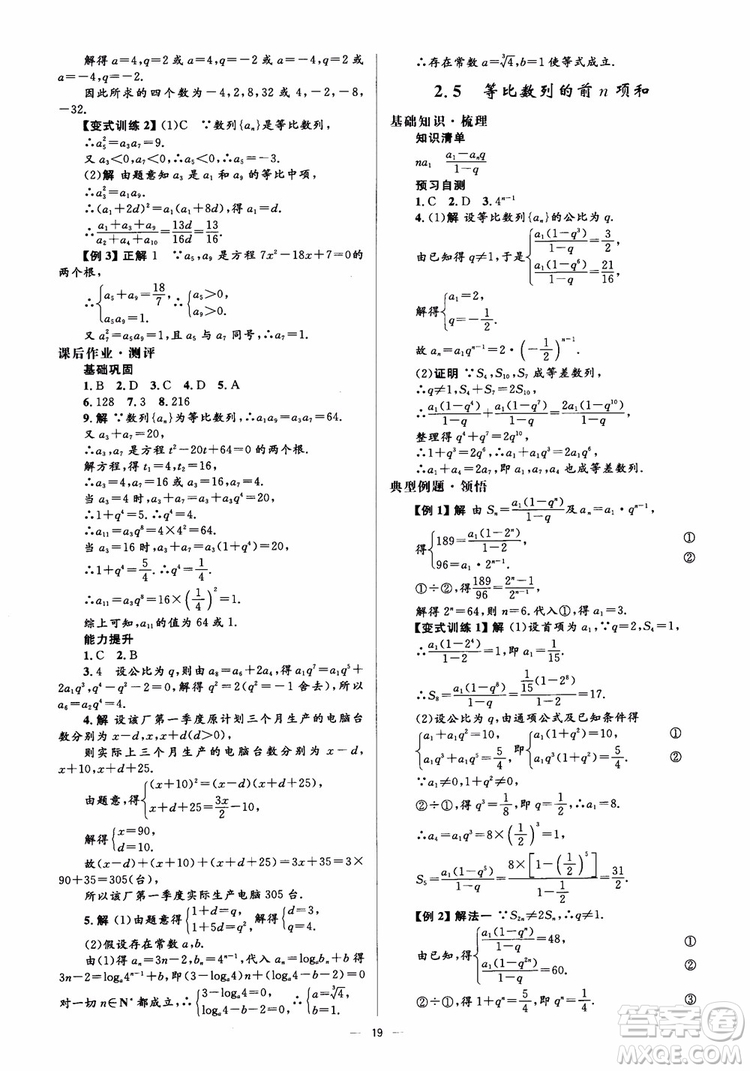 解得 a=4,q=2 或 a=4,q=-2 或 a=-4,q=2 或
a=-4,q=-2.
因此所求的四个数为-4,2,8,32 或 4,-2,-8,
-32.
【变式训练 2】(1)C ∵数列{aₙ}是等比数列,
∴a₅²=a₁a₉=9.
又 a₃<0,a₇<0,∴a₅<0,∴a₅=-3.
(2)解 由题意知 a₃是 a₁和 a₉的等比中项,
∴a₃²=a₁a₉.
∴(a₁+2d)²=a₁(a₁+8d),得 a₁=d.
∴(a₁+a₃+a₉)/(a₂+a₄+a₁₀)=13d/16d=13/16.
【例 3】正解 1 ∵a₅,a₉是方程 7x²-18x+7=0 的
两个根,
∴{a₅+a₉=18/7, ∴{a₅>0,
a₅a₉=1. a₉>0.
又∵a₇²=a₅a₉=1,且 a₇与 a₅同号,∴a₇=1.
课后作业·测评
基础巩固
1.B 2.D 3.C 4.D 5.A
6.128 7.3 8.216
9.解 ∵数列{aₙ}为等比数列,∴a₃a₇=a₁a₉=64.
又∵a₃+a₇=20,
∴a₃,a₇是方程 t²-20t+64=0 的两个根.
解方程,得 t₁=4,t₂=16,
∴a₃=4,a₇=16 或 a₃=16,a₇=4.
当 a₃=4 时,a₃+a₇=a₃+a₃q⁴=20,
∴1+q⁴=5,∴q⁴=4.
∴a₁₁=a₃q⁸=4×4²=64.
当 a₃=16 时,a₃+a₇=a₃(1+q⁴)=20,
∴1+q⁴=5/4.∴q⁴=1/4.
∴a₁₁=a₃q⁸=16×(1/4)²=1.
综上可知,a₁₁的值为 64 或 1.
能力提升
1.C 2.B
3.4 设公比为 q,则由 a₈=a₆+2a₄得 a₁q⁷=a₁q⁵+
2a₁q³,q⁴-q²-2=0,解得 q²=2(q²=-1 舍去),所以
a₆=a₂q⁴=4.
4.解 设该厂第一季度原计划三个月生产的电脑台
数分别为 x-d,x,x+d(d>0),
则实际上三个月生产的电脑台数分别为 x-d,
x+10,x+d+25,
由题意,得{(x+10)²=(x-d)(x+d+25),
x+d+25=3x/2-10,
解得{x=90,
d=10.
故(x-d)+(x+10)+(x+d+25)=3x+35=3×
90+35=305(台),
所以该厂第一季度实际生产电脑 305 台.
5.解 (1)由题意得{1+d=q, 解得{d=3,
1+5d=q², q=4.
(2)假设存在常数 a,b.
由(1)得 aₙ=3n-2,bₙ=4ⁿ⁻¹,代入 aₙ=logₐbₙ+b 得
3n-2=logₐ4ⁿ⁻¹+b,即(3-logₐ4)n+(logₐ4-b-2)=0,
对一切 n∈N*都成立,∴{3-logₐ4=0, ∴{a=∛4,
logₐ4-b-2=0, b=1.
∴存在常数 a=∛4,b=1 使等式成立.
2.5 等比数列的前 n 项和
基础知识·梳理
知识清单
na₁ (a₁-aₙq)/(1-q)
预习自测
1.C 2.D 3.4ⁿ⁻¹
4.(1)解 设等比数列{aₙ}的公比为 q.
由已知得 q≠1,于是{a₁(1-q³)/(1-q)=3/2,
a₁(1-q⁶)/(1-q)=21/16,
解得{a₁=2,
q=-1/2.
故 aₙ=a₁qⁿ⁻¹=2·(-1/2)ⁿ⁻¹.
(2)证明 ∵S₄,S₁₀,S₇成等差数列,
∴q≠1,S₄+S₇=2S₁₀.
∴a₁(1-q⁴)/(1-q)+a₁(1-q⁷)/(1-q)=2a₁(1-q¹⁰)/(1-q),
整理得 q⁴+q⁷=2q¹⁰,
∴a₁+a₁q³=2a₁q⁶,即 a₁,a₇,a₄也成等差数列.
典型例题·领悟
【例 1】解 由 Sₙ=a₁(1-qⁿ)/(1-q)及 aₙ=a₁·qⁿ⁻¹,
得{189=a₁(1-2ⁿ)/(1-2), ①
96=a₁·2ⁿ⁻¹. ②
①÷②,得189/96=(2ⁿ-1)/2ⁿ⁻¹,
解得 2ⁿ=64,∴n=6.代入①,得 a₁=3.
【变式训练 1】解 (1)设首项为 a₁,∵q=2,S₄=1,
∴a₁(1-2⁴)/(1-2)=1,即 a₁=1/15,
∴S₈=a₁(1-q⁸)/(1-q)=1/15(1-2⁸)/(1-2)=17.
(2)设公比为 q,由通项公式及已知条件得
{a₁+a₁q²=10, 即{a₁(1+q²)=10, ①
a₁q³+a₁q⁵=5/4, a₁q³(1+q²)=5/4. ②
∵a₁≠0,1+q²≠0,
②÷①,得 q³=1/8,即 q=1/2,∴a₁=8.
∴a₄=a₁q³=8×(1/2)³=1,
S₅=a₁(1-q⁵)/(1-q)=8×[1-(1/2)⁵]/(1-1/2)=31/2.
【例 2】解法一 ∵S₂ₙ≠2Sₙ,∴q≠1.
由已知,得{a₁(1-qⁿ)/(1-q)=48, ①
a₁(1-q²ⁿ)/(1-q)=60, ②
②÷①,得 1+qⁿ=5/4,即 qⁿ=1/4, ③
19
答案圈
MXQE.COM